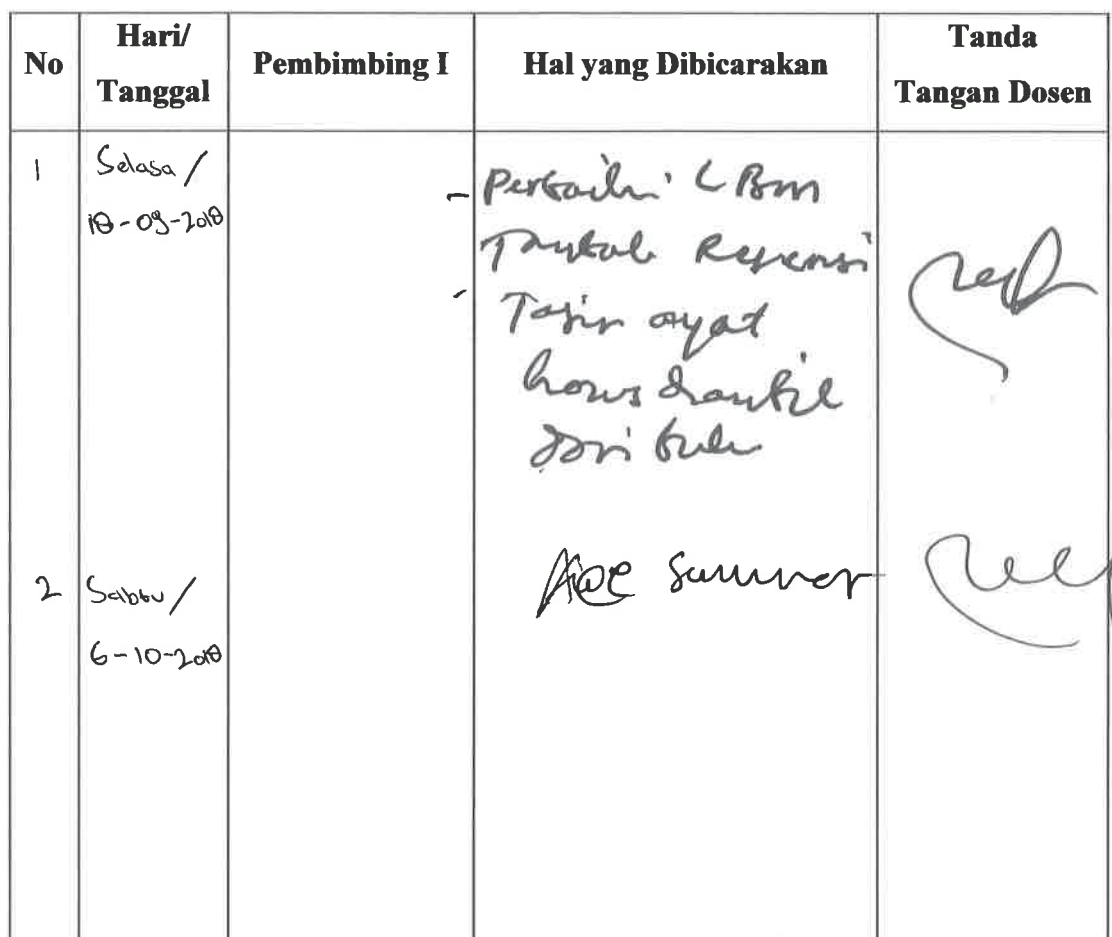 No Hari/ Tanggal Pembimbing I Hal yang Dibicarakan Tanda Tangan Dosen
1 Selasa / - Perbaiki LBM
18-09-2018
Tambah Referensi
- Tafsir ayat
harus diambil
dari buku
2 Sabtu / Acc Seminar
6-10-2018